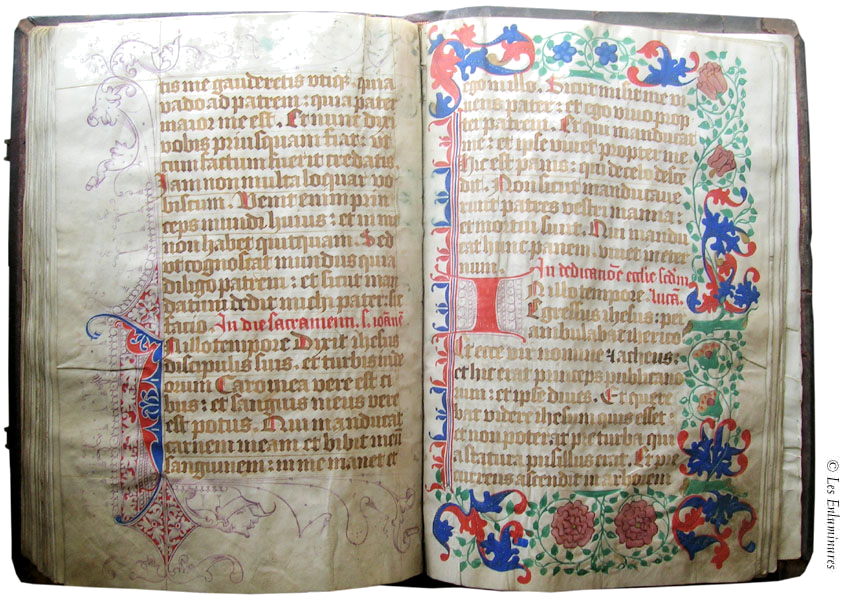 tis me gauderetis vtiq3 quia
vado ad patrem: quia pater
maior me est. Et nunc dixi
vobis priusquam fiat: vt
cum factum fuerit credatis
Iam non multa loquar vo
biscum. Venit enim prin
ceps mundi huius: et in me
non habet quitquam. Sed
vt cognoscat mundus quia
diligo patrem: et sicut man
datum dedit michi pater: sic
facio. In die sacramenti. s. ioānē
In illo tempore Dixit ihesus
discipulis suis. et turbis iude
orum Caro mea vere est ci
bus: et sanguis meus vere
est potus. Qui manducat
carnem meam et bibit meū
sanguinem: in me manet et
ego in illo. Sicut misit me vi
uens pater: et ego viuo prop
ter patrem. Et qui manducat
me: et ipse viuet propter me
Hic est panis: qui de celo desce
dit. Non sicut manducaue
runt patres vestri manna:
et mortui sunt. Qui mandu
cat hunc panem viuet in eter
num. In dedicatiōe ecclie scdm
In illo tempore. lucā.
Egressus ihesus: per
ambulabat iherico
Et ecce vir nomine zacheus:
et hic erat princeps publicano
rum: et ipse diues. Et quere
bat videre ihesum quis esset:
et non poterat pre turba qui
a statura pusillus erat. Et pre
currens ascendit in arborem
© Les Enluminures